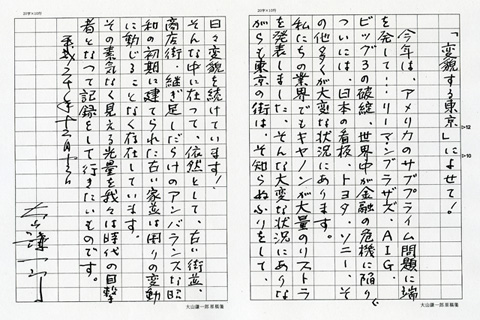 20字×10行
「変貌する東京」によせて！
今年は、アメリカのサブプライム問題に端
を発して‥‥リーマンブラザズ、AIG、
ビッグ3の破綻、世界中が金融の危機に陥り、
ついには、日本の看板、トヨタ、ソニー、そ
の他多くが大変な状況にあります。
私たちの業界でもキヤノンが大量のリストラ
を発表しました。そんな大変な状況にありな
がらも東京の街は、そ知らぬふりをして、
12
10
大山謙一郎原稿集
20字×10行
日々変貌を続けています！
そんな中に在って、依然として、古い街並、
商店街、継ぎ足しだらけのアンバランスな昭
和の初期に建てられた古い家並は周りの変動
に動じることなく存在しています。
その素気なく見える光景を我々は時代の目撃
者となって記録をして行きたいものです。
平成二十年十二月十六日
大山謙一郎
大山謙一郎原稿集